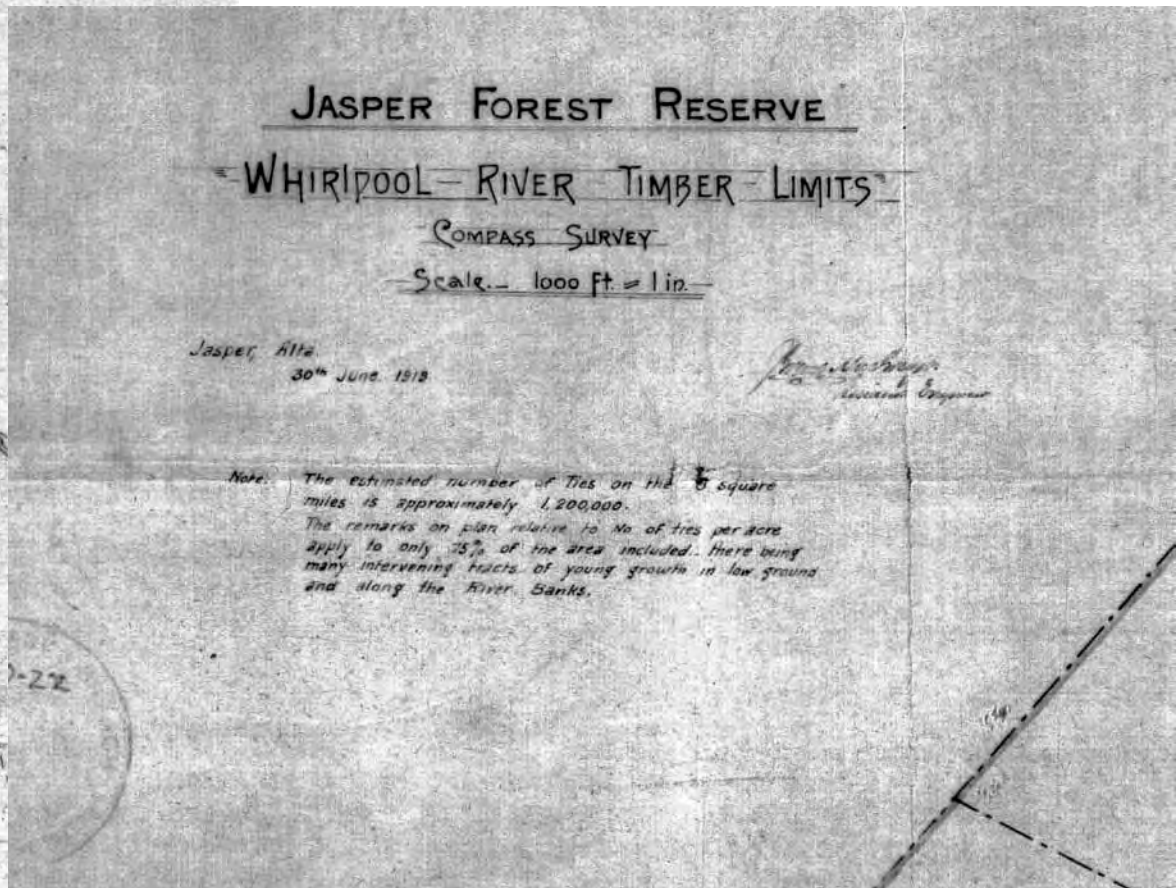 JASPER FOREST RESERVE
"WHIRLPOOL - RIVER - TIMBER - LIMITS"
COMPASS SURVEY
Scale.- 1000 ft. = 1 in.
Jasper, Alta.
30th June. 1919
Engineer
Note: The estimated number of Ties on the square
miles is approximately 1,200,000.
The remarks on plan relative to No of ties per acre
apply to only 75% of the area included.. there being
many intervening tracts of young growth in low ground
and along the River Banks.
-22